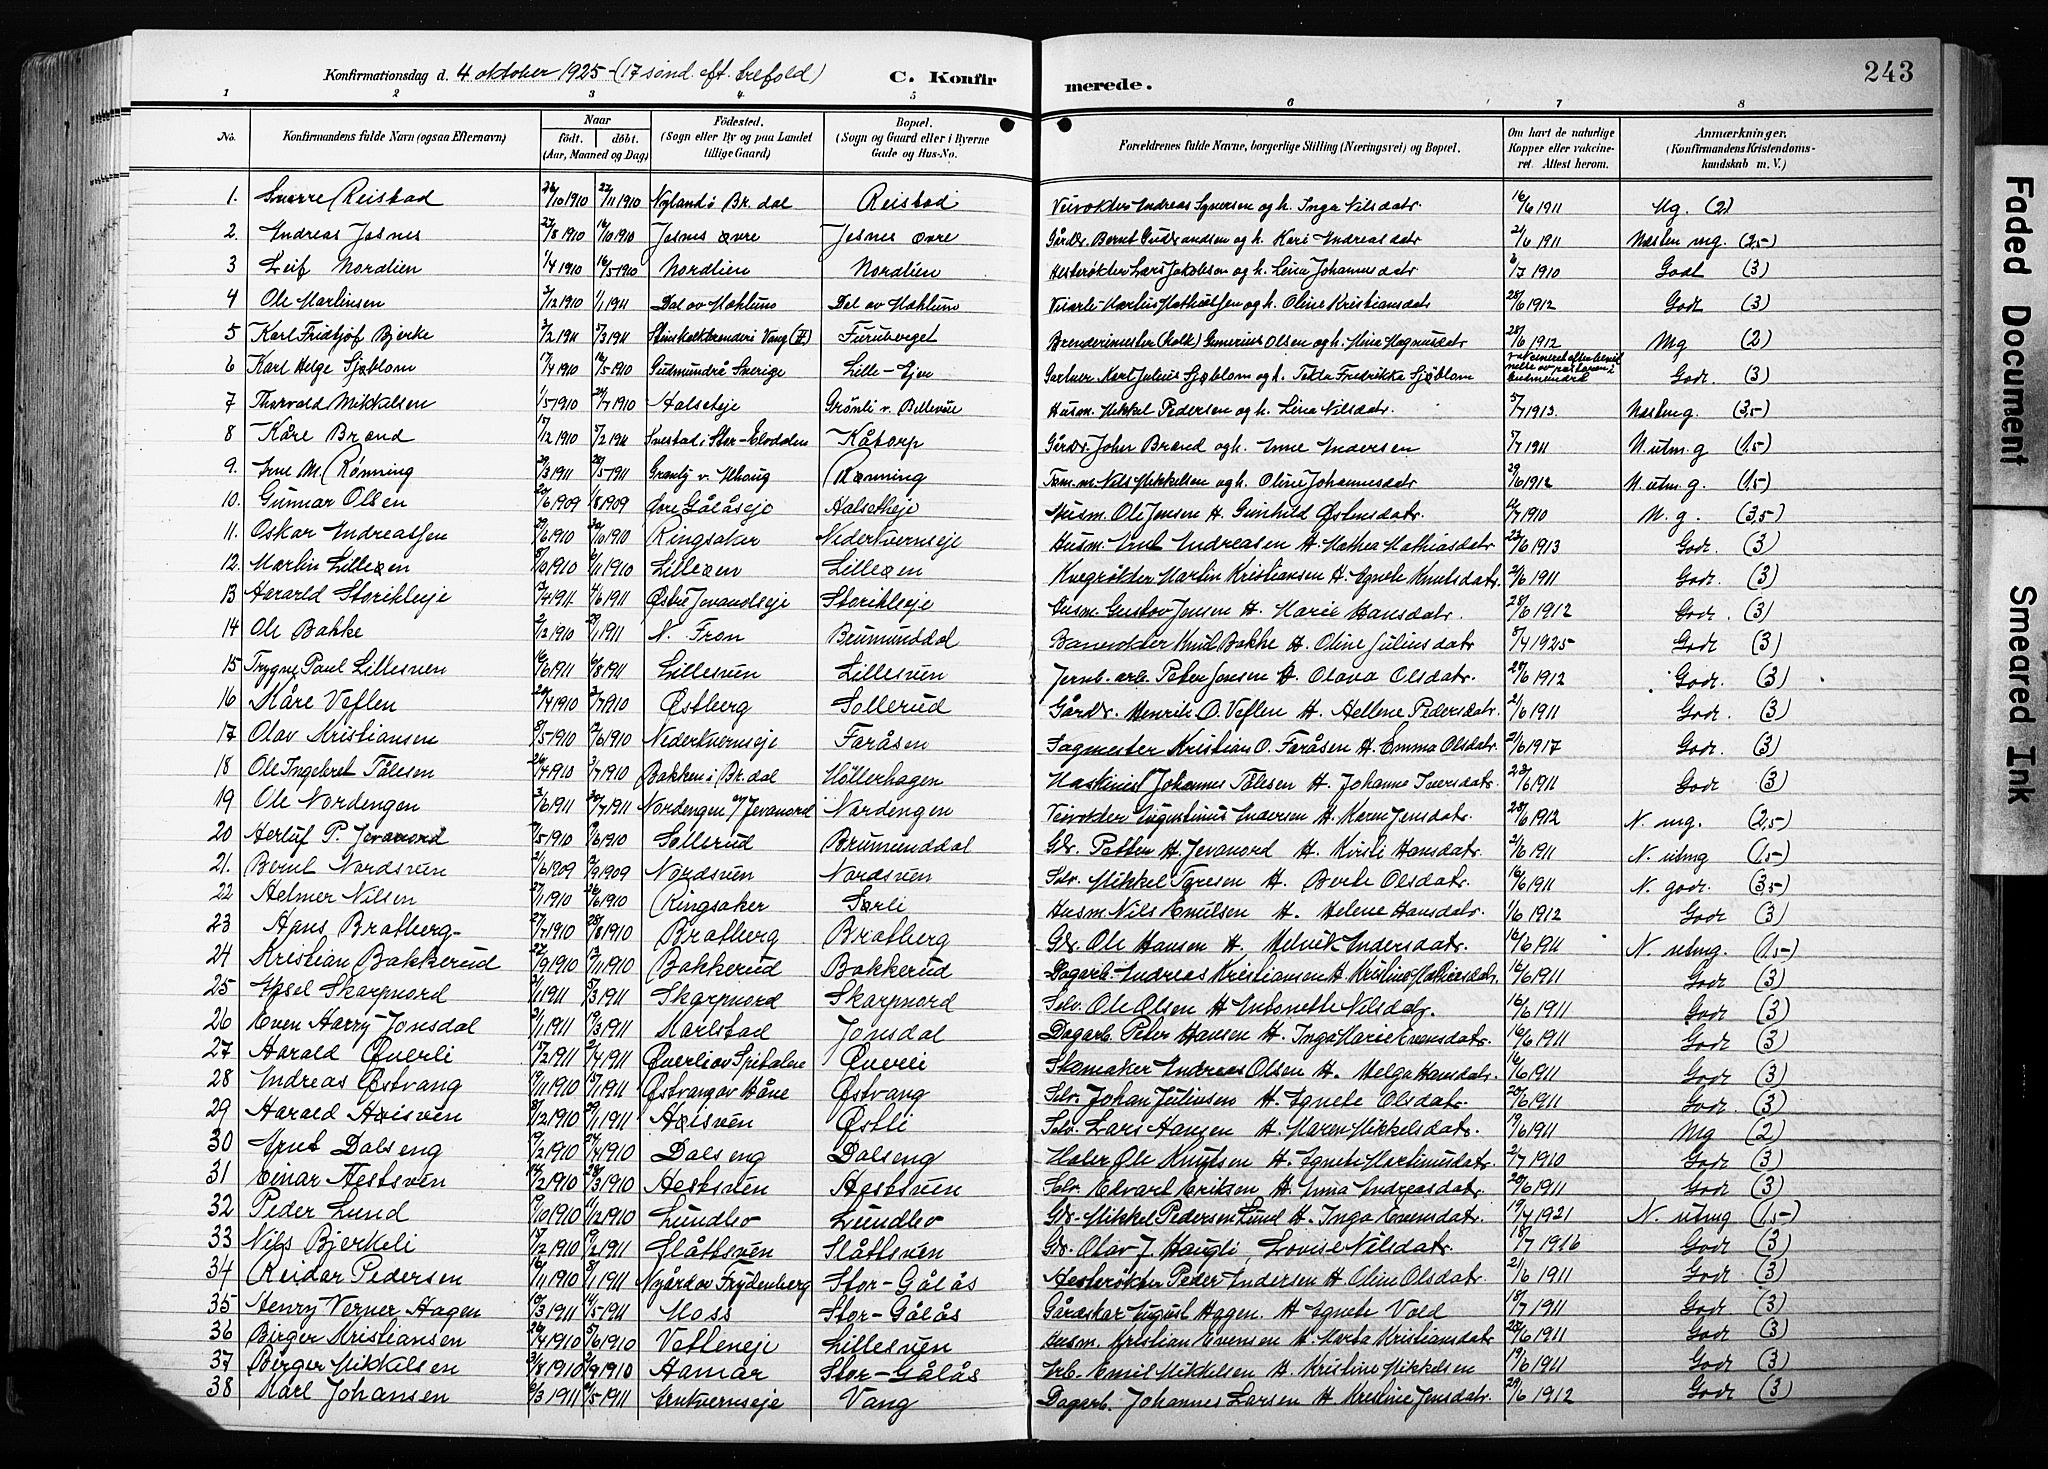 Konfirmationsdag d. 4 oktober 1925 - (17 sønd. eft. trefold) C. Konfirmerede. 243
1 2 3 4 5 6 7 8
No. Konfirmandens fulde Navn (ogsaa Efternavn) Naar født. døbt. (Aar, Maaned og Dag) Fødested. (Sogn eller By og paa Landet tillige Gaard) Bopæl. (Sogn og Gaard eller i Byerne Gade og Hus-No. Forældrenes fulde Navne, borgerlige Stilling (Næringsvei) og Bopæl. Om havt de naturlige Kopper eller vakcineret. Attest herom. Anmærkninger. (Konfirmandens Kristendomskundskab m. V.)
1. Snorre Reistad 26/10 1910 27/11 1910 Br. dal Reistad Veivokter Andreas og h. Inga Nilsdatr. 16/6 1911 Mg. (2)
2. Andreas Josnes 27/8 1910 16/10 1910 Josnes øvre Josnes øvre Gårdbr. Bernt Gudbrandsen og h. Kari Andreasdatr 21/6 1911 Næsten mg. (2,5)
3 Leif Nordlien 1/4 1910 16/5 1910 Nordlien Nordlien Hesterøkter Lars Jakobsen og h. Lina Johannesdatr 6/7 1910 Godt (3)
4 Ole Martinsen 3/12 1910 1/1 1911 Dal av Mæhlum Dal av Mæhlum Veiarb. Martin Mathiassen og h. Oline Kristiansdatr 28/6 1912 Godt (3)
5 Karl Fridtjof Bjerke 3/2 1911 5/3 1911 Vang (H.) Furuberget Brenderimester (kalk) Olsen og h. Mina Magnusdatr 28/6 1912 Mg (2)
6 Karl Helge Sjøblom 17/4 1910 16/5 1910 Gudmundrå Sverige Lille-Ejen Gartner Karl Julius Sjøblom og h. Tekla Fredrikka Sjøblom Godt. (3)
7 Thorvald Mikkelsen 1/5 1910 24/7 1910 Halseteje Grønli v. Bellevue Husm. Mikkel Pedersen og h. Lina Nilsdatr. 5/7 1913. Næsten g. (3,5)
8 Kåre Brænd 15/12 1910 5/2 1911 Svestad i Stor-Elvdalen Kåtorp Gårdbr. Johan Brænd og h. Anne Andersen 5/7 1911 N. utm. g (1,5)
9. Arne M. Rønning 29/3 1911 28/5 1911 Rønning Tøm.m. Nils Mikkelsen og h. Oline Johannesdatr 29/6 1912 N. utm. g. (1,5)
10. Gunnar Olsen 20/6 1909 1/8 1909 Øvre Gålåseje Halseteje Husm. Ole Jensen H. Gunhild Østensdatr. 12/7 1910 N. g. (3,5)
11. Oskar Andreassen 29/6 1910 30/10 1910 Ringsaker Nederkverneje Husm. Emil Andreasen H. Mathea Mathiasdatr 23/6 1913 Godt. (3)
12. Martin Lilleøen 8/10 1910 2/11 1910 Lilleøen Lilleøen Kvegrøkter Martin Kristiansen H. Agnete Knutsdatr. 21/6 1911 Godt. (3)
13 Harald Storihleje 13/4 1911 4/6 1911 Østre Jevanolseje Storihleje Husm. Gustav Jensen H. Marie Hansdatr. 28/6 1912 Godt. (3)
14 Ole Bakke 2/12 1910 29/1 1911 N. Fron Brumunddal Banevokter Knut Bakke H. Oline Juliusdatr 5/4 1925 Godt (3)
15 Trygve Paul Lillesven 16/6 1911 6/8 1911 Lillesven Lillesven Jernb. arb. Peter Jonsen H. Olava Olsdatr. 28/6 1912 Godt. (3)
16 Kåre Veflen 20/4 1910 3/7 1910 Østberg Sollerud Gårdbr. Henrik O. Veflen H. Hellene Pedersdatr. 21/6 1911 Godt. (3)
17 Olav Kristiansen 8/5 1910 12/6 1910 Nederkverneje Faråsen Sagmester Kristian O. Faråsen H. Emma Olsdatr. 21/6 1917 Godt. (3)
18 Ole Ingebret Tålesen 26/4 1910 3/7 1910 Bakken i Br. dal Høllerhagen Maskinist Johannes Tålesen H. Johanne Iversdatr. 23/6 1911 Godt (3)
19 Ole Nordengen 3/6 1911 30/7 1911 Nordengen av Jevanord Nordengen Veivokter Augustinus Andersen H. Karen Jensdatr. 28/6 1912 N. mg. (2,5)
20 Herluf P. Jevanord 9/5 1910 19/6 1910 Sollerud Brumunddal Gbr. Petter H. Jevanord H. Kirsti Hansdatr. 21/6 1911 N. utmg (1,5)
21. Bernt Nordsven 2/6 1909 2/9 1909 Nordsven Nordsven Selv. Mikkel H. Berte Olsdatr. 16/6 1911 N. godt. (3,5)
22 Helmer Nilsen 27/1 1910 26/6 1910 Ringsaker Sørli Husm. Nils Emilsen H. Helene Hansdatr. 1/6 1912 Godt (3)
23 Hans Bratberg 27/7 1910 28/8 1910 Bratberg Bratberg Gbr. Ole Hansen H. Andersdatr. 16/6 1911 N. utmg. (1,5)
24 Kristian Bakkerud 27/9 1910 13/11 1910 Bakkerud Bakkerud Dagarb. Andreas Kristiansen H. Kristine Mathiasdatr. 16/6 1911 Godt (3)
25 Aksel Skarpnord 2/1 1911 5/3 1911 Skarpnord Skarpnord Selv. Ole Olsen H Antonette Nilsdatr. 16/6 1911 Godt (3)
26 Even Harry Jonsdal 3/1 1911 19/3 1911 Karlstad Jonsdal Dagarb. Peter Hansen H. Inga Marie Evensdatr. 16/6 1911 Godt (3)
27 Harald Øverli 15/2 1911 2/4 1911 Øverli av Spitalne Øverli Skomaker Andreas Olsen H. Helga Hansdatr. 16/6 1911 Godt (3)
28 Andreas Østvang 19/11 1910 15/1 1911 Østvang av Håne Østvang Selv. Johan Juliusen H. Agnete Olsdatr. 20/6 1911 Godt (3)
29 Harald Hoisven 8/12 1910 29/1 1911 Hoisven Østli Selv. Lars Hansen H. Maren Mikkelsdatr. 19/6 1911 Mg (2)
30 Arnt Dalseng 19/2 1910 24/4 1910 Dalseng Dalseng Maler Ole Knutsen H. Agnete Martinusdatr. 2/7 1910 Godt (3)
31 Einar Hestsven 14/2 1910 28/3 1910 Hestsven Hestsven Selv. Edvart Eriksen H. Anna Andreasdatr. 20/6 1911 Godt (3)
32 Peder Lund 9/10 1910 4/12 1910 Lundlev Lundlev Gbr. Mikkel Pedersen Lund H. Inga Evensdatr. 19/4 1921 N. utmg (1,5)
33 Nils Bjerkeli 15/12 1910 19/2 1911 Slåttsven Slåttsven Gbr. Olav J. Haugli Lovise Nilsdatr. 18/7 1916 Godt (3)
34 Reidar Pedersen 16/11 1910 8/1 1911 Nygård av Frydenberg Stor-Gålås Hesterøkter Peder Andersen H. Oline Olsdatr. 21/6 1911 Godt (3)
35 Henry Verner Hagen 10/3 1911 14/5 1911 Moss Stor-Gålås Gårdskar August Hagen. H Agnete Vold 18/7 1911 Godt (3)
36 Birger Kristiansen 26/4 1910 5/6 1910 Vetleneje Lillesven Husm. Kristian Evensen H. Marta Kristiansdatr 28/6 1911 Godt (3)
37 Birger Mikkelsen 3/8 1910 2/9 1910 Hamar Stor-Gålås Arb. Emil Mikkelsen H Kristine Mikkelsen 19/6 1911 Godt (3)
38 Karl Johansen 6/3 1911 4/5 1911 Vang Dagarb. Johannes Larsen H Kristine Jensdatr. 29/6 1912 Godt (3)
Faded Document
Smeared Ink